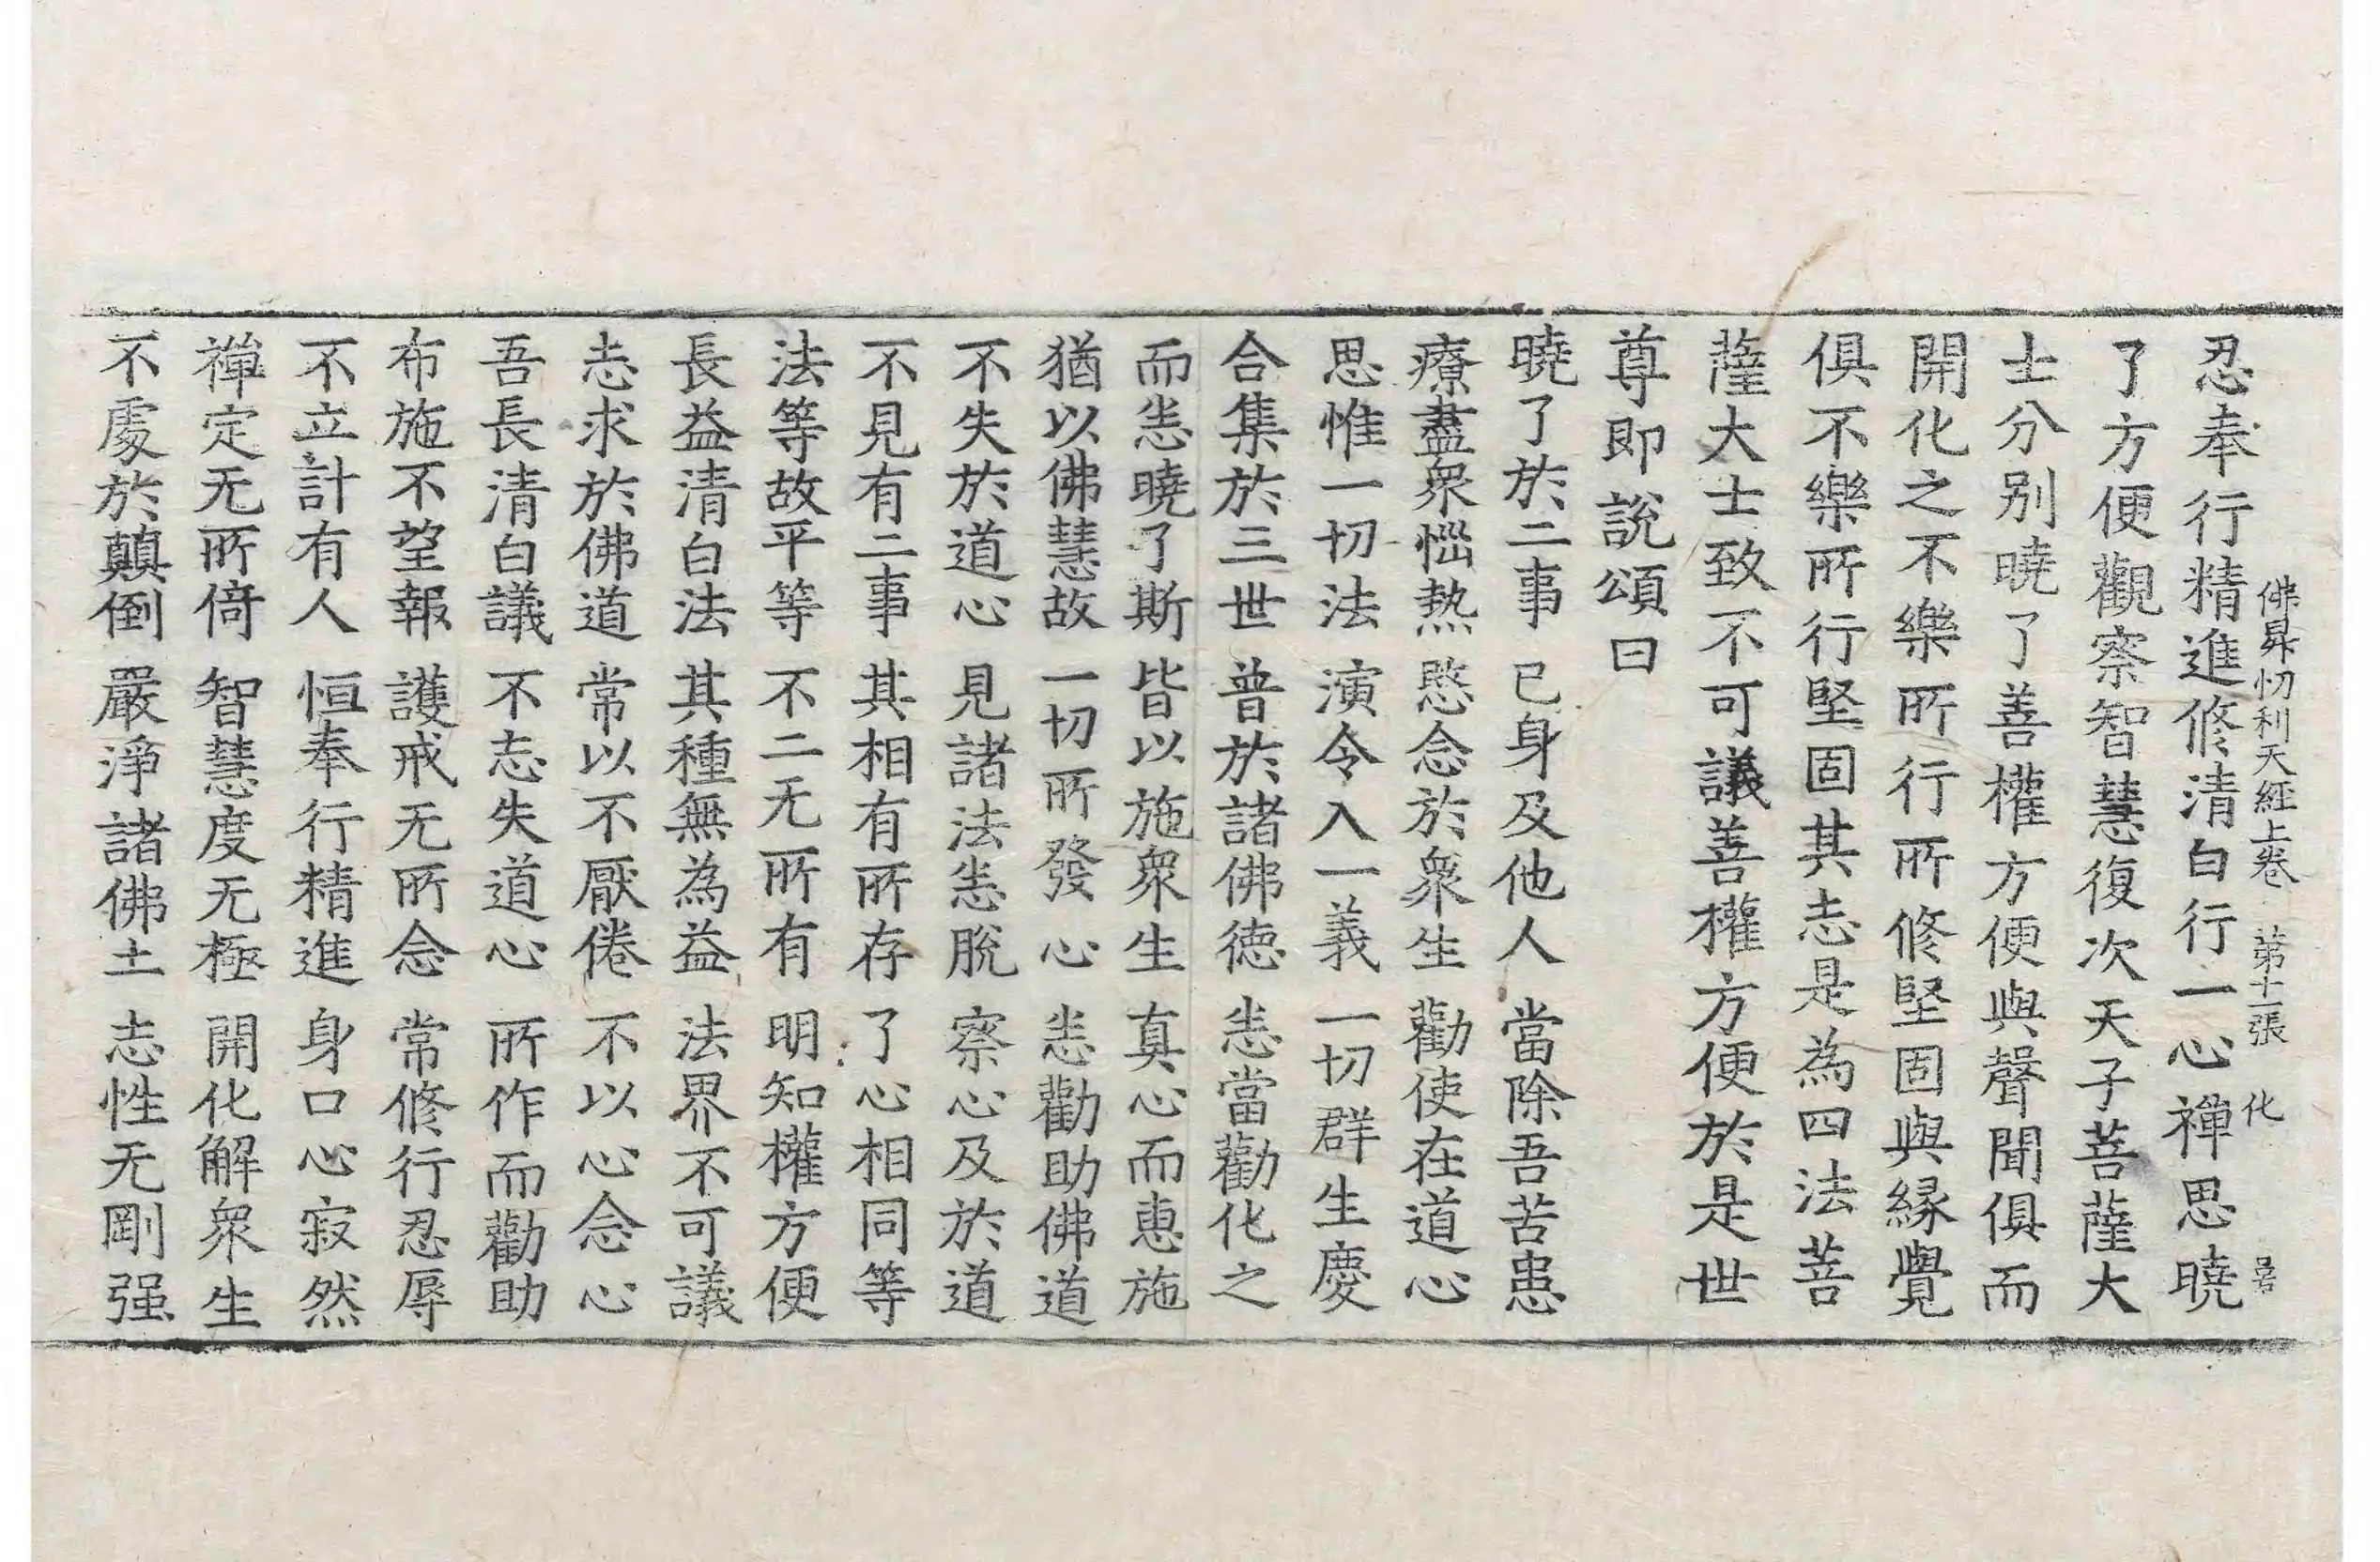 佛昇忉利天經上卷 第十一張 化
忍奉行精進修清白行一心禪思曉
了方便觀察智慧復次天子菩薩大
士分別曉了善權方便與聲聞俱而
開化之不樂所行所修堅固與緣覺
俱不樂所行堅固其志是為四法菩
薩大士致不可議善權方便於是世
尊即說頌曰
曉了於二事 已身及他人 當除吾苦患
療盡衆惱熱 愍念於衆生 勸使在道心
思惟一切法 演令入一義 一切群生慶
合集於三世 普於諸佛德 恙當勸化之
而恙曉了斯 皆以施衆生 真心而惠施
猶以佛慧故 一切所發心 恙勸助佛道
不失於道心 見諸法恙脫 察心及於道
不見有二事 其相有所存 了心相同等
法等故平等 不二无所有 明知權方便
長益清白法 其種無為益 法界不可議
志求於佛道 常以不厭倦 不以心念心
吾長清白議 不志失道心 所作而勸助
布施不望報 護戒无所念 常修行忍辱
不立計有人 恒奉行精進 身口心寂然
禪定无所倚 智慧度无極 開化解衆生
不處於顛倒 嚴淨諸佛土 志性无剛强